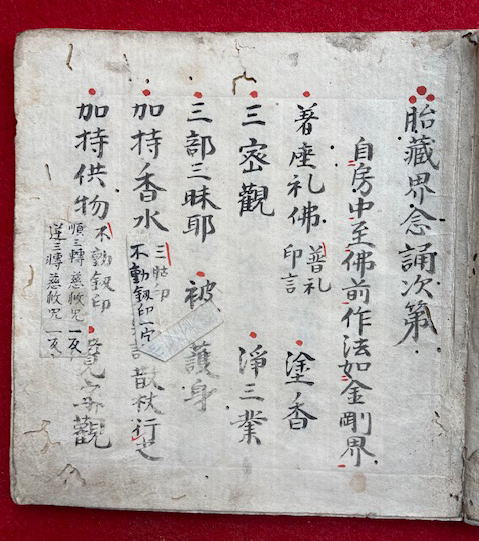 胎藏界念誦次第
自房中至佛前作法如金剛界
著座礼佛 普礼印言 塗香
三密觀 淨三業
三部三昧耶 被 護身
加持香水 三 印 散杖行之
不動釼印
加持供物 不動釼印 觀
順三轉慈救咒一反
逆三轉慈救咒一反